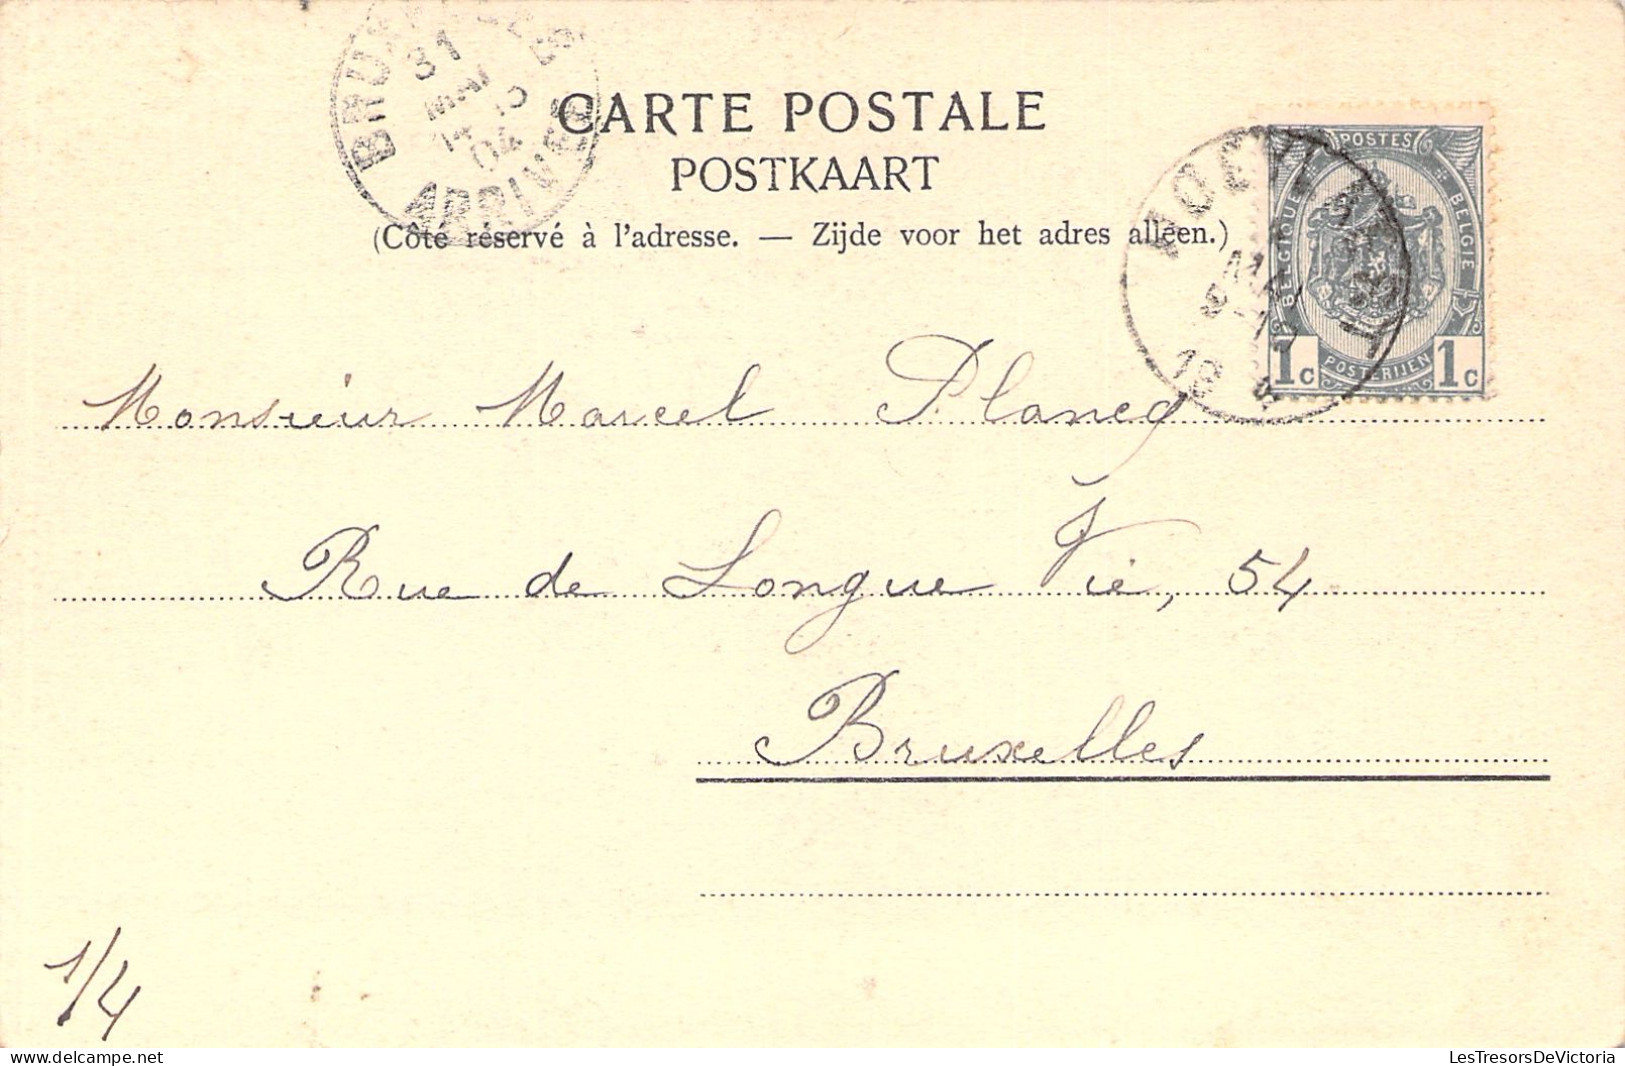 CARTE POSTALE
POSTKAART
(Côté réservé à l'adresse. — Zijde voor het adres alleen.)
31
MAI
04
ARRIVÉE
POSTES
BELGIQUE
BELGIE
POSTERIJEN
1c 1c
MAI
Monsieur Marcel Plancq
Rue de Longue Vie, 54
Bruxelles
1/4
LesTresorsDeVictoria delcampe.net